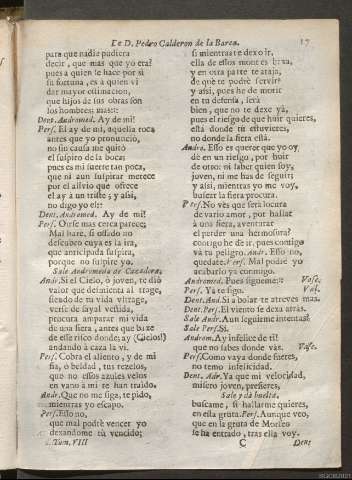 De D. Pedro Calderon de la Barca.
17
para que nadie pudiera
decir, que mas que yo era?
pues a quien le hace por sì
su fortuna, es à quien vi
dar mayor estimacion,
que hijos de sus obras son
los hombres: mas::-
Dent. Andromed. Ay de mi!
Pers. El ay de mi, aquella roca
antes que yo pronunciò,
no sin causa me quitò
el suspiro de la boca;
pues es mi suerte tan poca,
que ni aun suspirar merece
por el alivio que ofrece
el ay à un triste; y asi,
no digo yo el::-
Dent. Andromed. Ay de mi!
Pers. Otra mas cerca parece;
Mal hare, si osado no
descubro cuya es la ira,
que anticipada suspira,
porque no suspire yo.
Sale Andromeda de Cazadora.
Andr. Si el Cielo, ò joven, te diò
valor que defienda al trage,
siendo de tu vida ultrage,
verse de sayal vestida,
procura amparar mi vida
de una fiera, antes que baxe
de esse risco donde, ay (Cielos!)
andando à caza la vi.
Pers. Cobra el aliento, y de mi
fia, ò beldad, tus rezelos,
que no essos azules velos
en vano à mi te han traido.
Andr. Que no me siga, te pido,
mientras yo escapo.
Pers. Esso no,
que mal podrè vencer yo
dexandome tù vencido;
Tom. VIII
si mientras te dexo ir,
ella de essos montes baxa,
y en otra parte te ataja,
de què te podrè servir?
y asi, pues he de morir
en tu defensa, serà
bien, que no te dexe yà,
pues el riesgo de que huir quieres,
està donde tù estuvieres,
no donde la fiera està.
Andr. Esso es querer que yo oy
dè en un riesgo, por huir
de otro: ni saber quien soy,
joven, ni me has de seguir;
y asi, mientras yo me voy,
buscar la fiera procura.
Pers. No vès que serà locura
de vario amor, por hallar
à una fiera, aventurar
el perder una hermosura?
contigo he de ir, pues contigo
và tu peligro. Andr. Esso no,
quedate. Pers. Mal podrè yo
acabarlo yà conmigo.
Andromed. Pues sigueme:- Vase.
Pers. Yà te sigo. Vas.
Dent. And. Si à bolar te atreves mas.
Dent. Pers. El viento se dexa atràs.
Sale Andr. Aun seguirme intentas?
Sale Pers. Sì.
Androm. Ay infelice de ti!
que no sabes donde vàs. Vase.
Pers. Como vaya donde fueres,
no temo infelicidad.
Dent. Andr. Ya que mi velocidad,
misero joven, prefieres,
Sale yà buelta.
buscame, si hallarme quieres,
en essa gruta. Pers. Aunque veo,
que en la gruta de Morfeo
se ha entrado, tras ella voy.
C
Dent